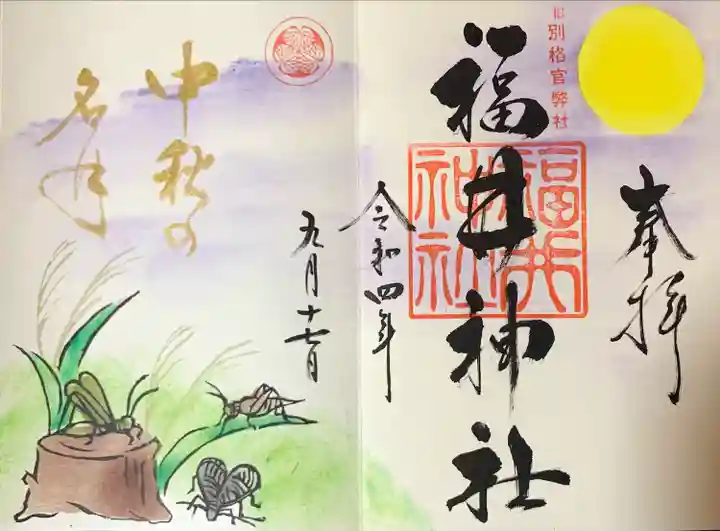 奉拝
旧別格官幣社
福井神社
福井
神社
令和四年
九月十七日
中秋の
名月